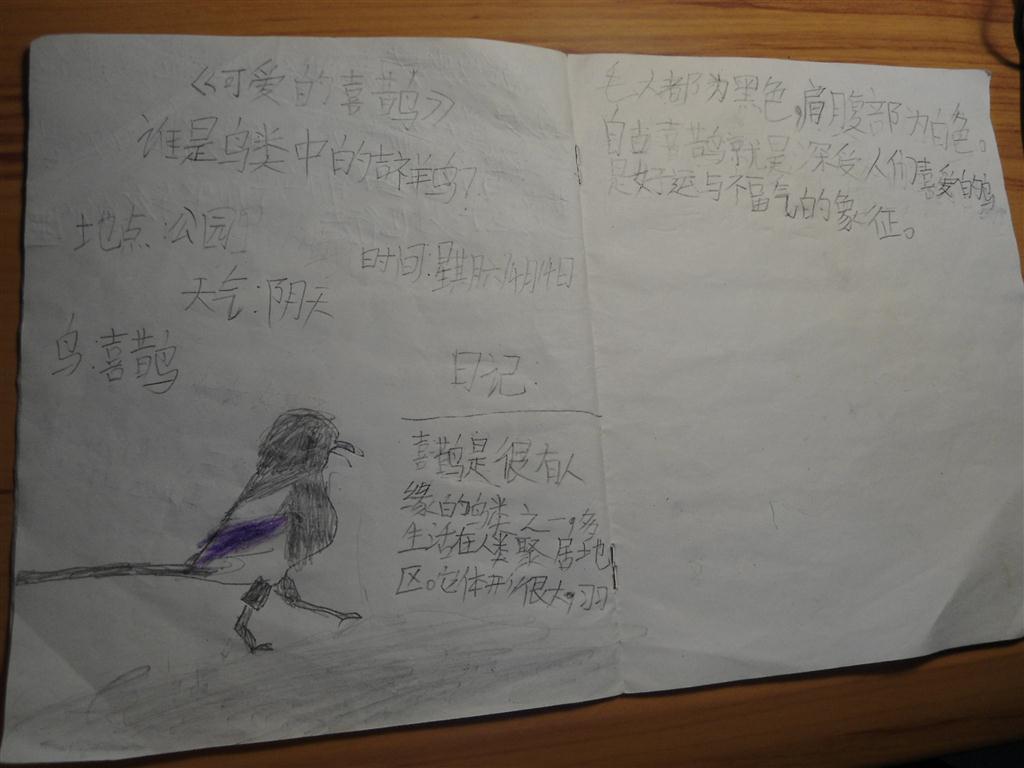 《可爱的喜鹊》
谁是鸟类中的吉祥鸟?
地点:公园
时间:星期六4月14日
天气:阴天
鸟:喜鹊
日记:
喜鹊是很有人
缘的鸟类之一,多
生活在人类聚居地
区。它体形很大,羽
毛大都为黑色,肩腹部为白色。
自古喜鹊就是深受人们喜爱的鸟
是好运与不富气的象征。